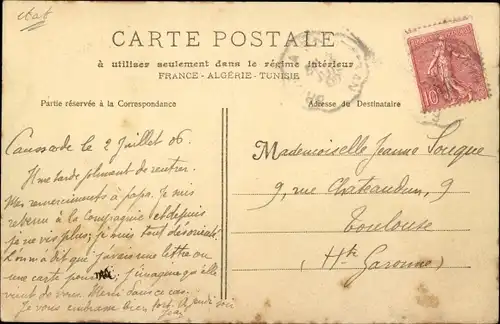 CARTE POSTALE
à utiliser seulement dans le régime intérieur
FRANCE - ALGÉRIE - TUNISIE
Partie réservée à la Correspondance
Adresse du Destinataire
10
Caussade le 2 Juillet 06.
Il me tarde de rentrer.
Mes remerciements à papa. Je suis
revenu à la Compagnie et depuis
je ne vis plus, je suis tout désorienté.
L'on m'a dit que j'avais une lettre ou
une carte pour j'imagine qu'elle
vient de vous. Merci dans ce cas.
Je vous embrasse bien fort. A
Mademoiselle Jeanne Souque
9, rue Chateaudun, 9
Toulouse
(Hte Garonne)